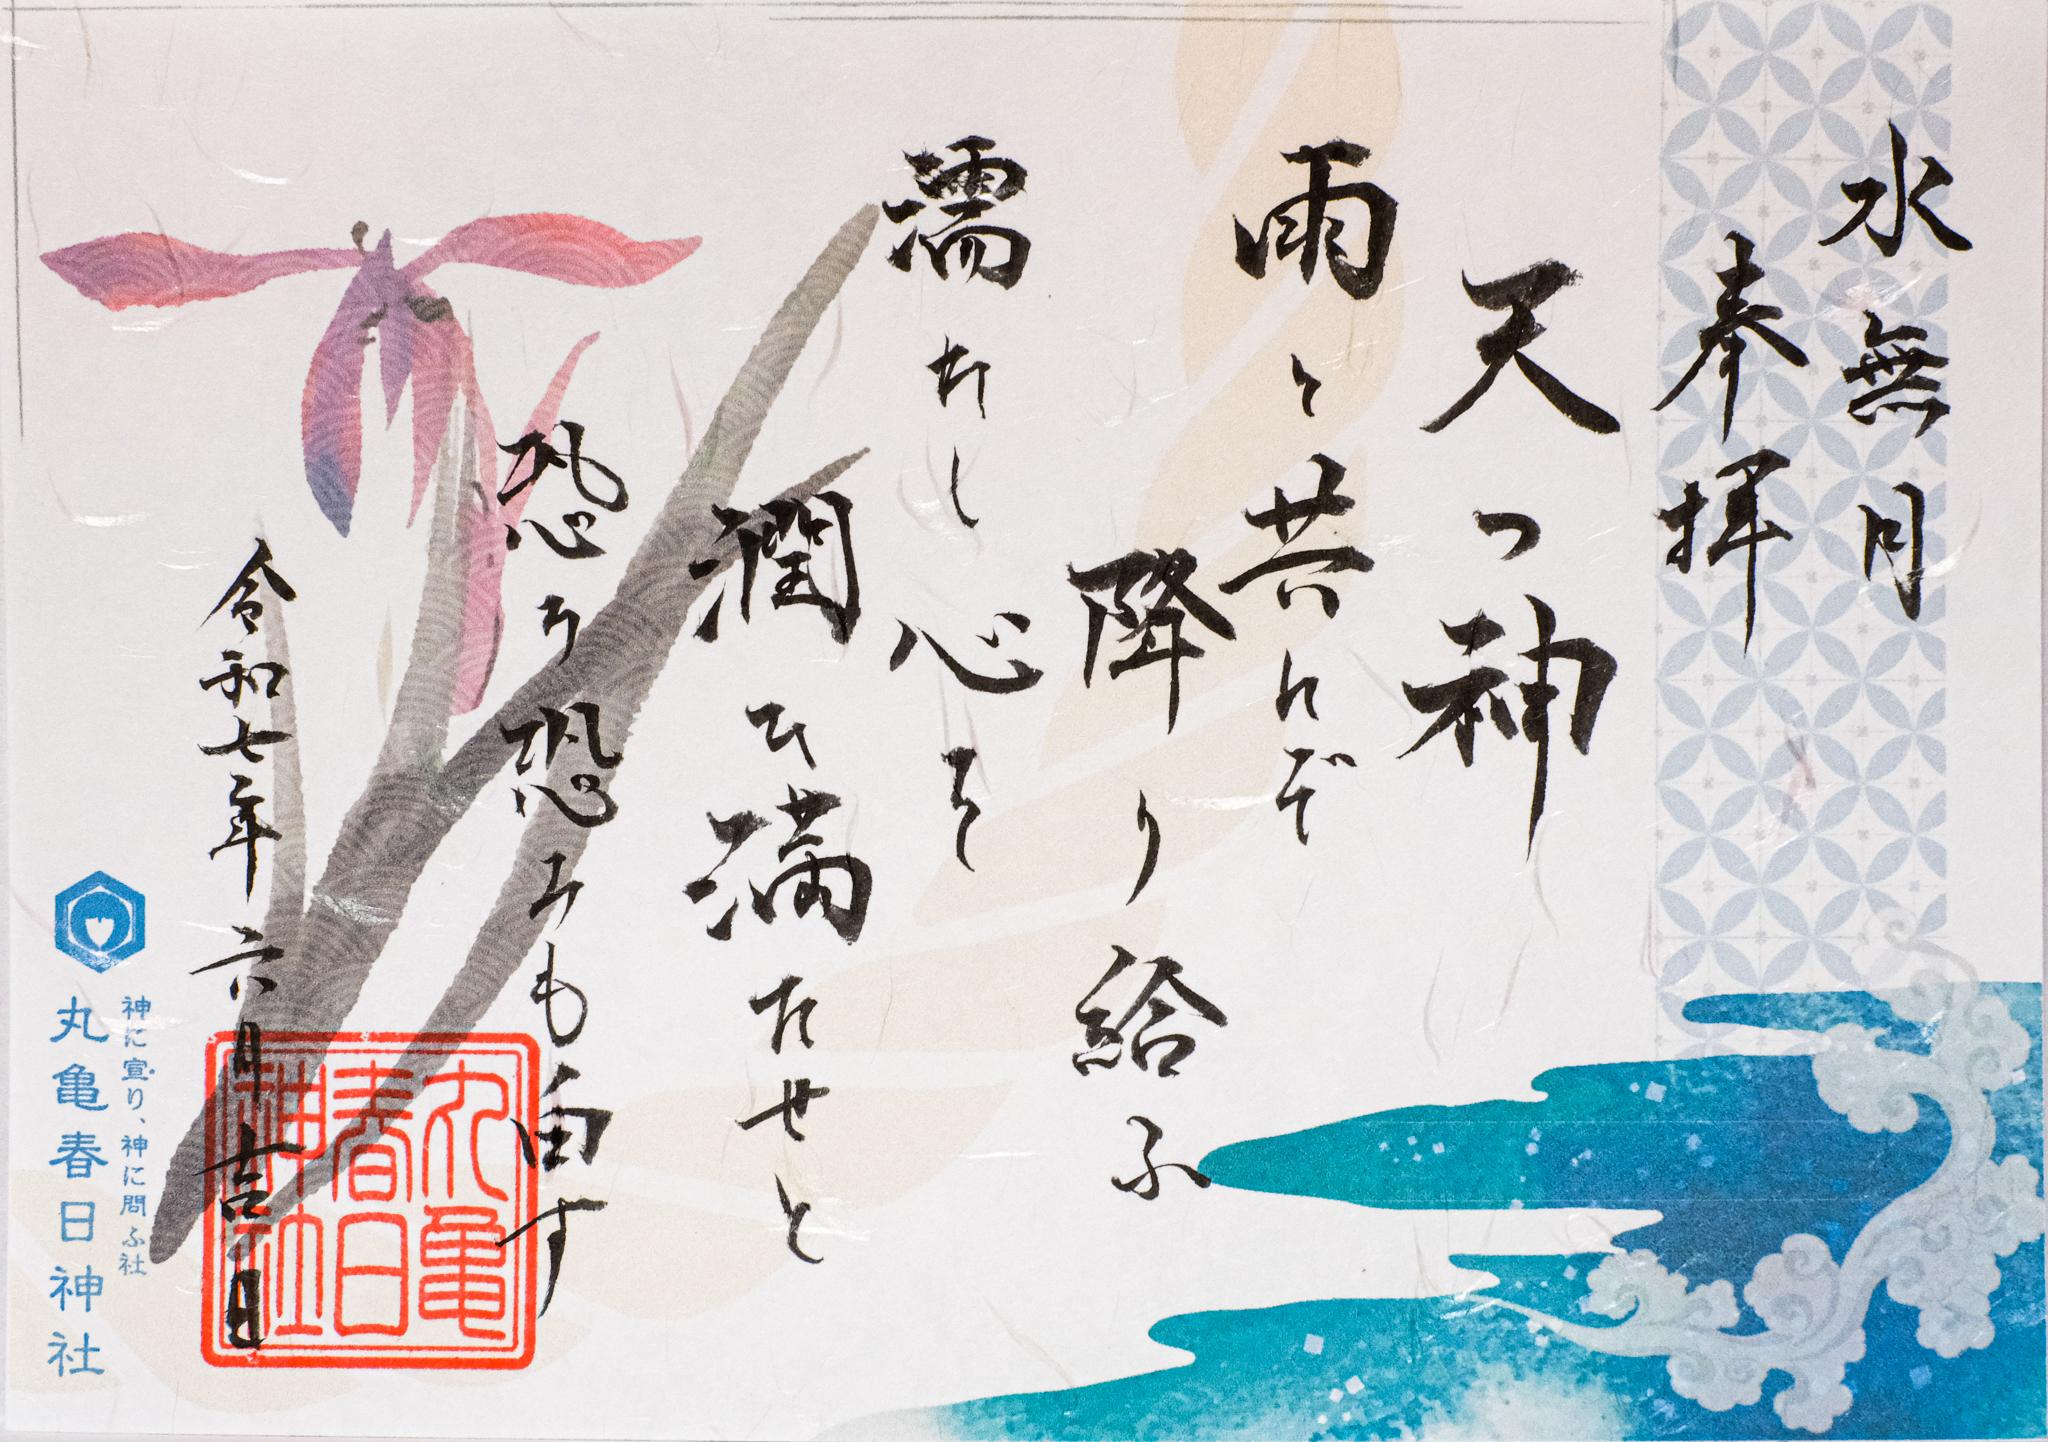 水無月
奉拝
天つ神
雨と共にぞ
降り給ふ
濡れし心を
潤ひ満たせと
恐み恐みも白す
令和七年六月吉日
丸亀
春日
神社
神に宣り、神に問ふ社
丸亀春日神社